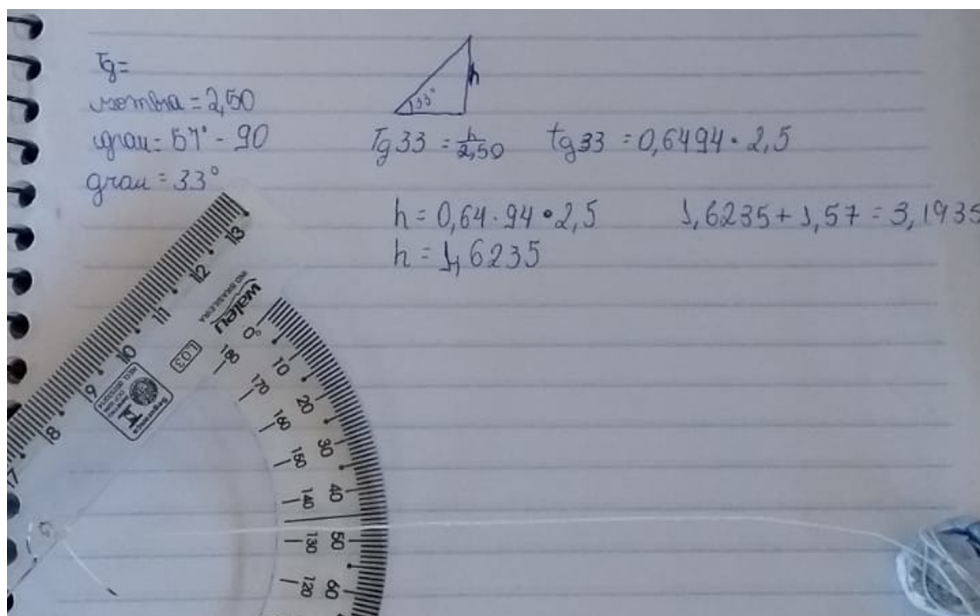 Tg=
sombra = 2,50
grau = 57° - 90
grau = 33°
h
33°
Tg33 = h/2,50
tg33 = 0,6494 · 2,5
h = 0,64·94 · 2,5
1,6235 + 1,57 = 3,1935
h = 1,6235
7 8 9 10 11 12 13
waleu
IND BRASILEIRA
L03
Segurança
0° 10 20 30 40 50 60
180 170 160 150 140 130 120